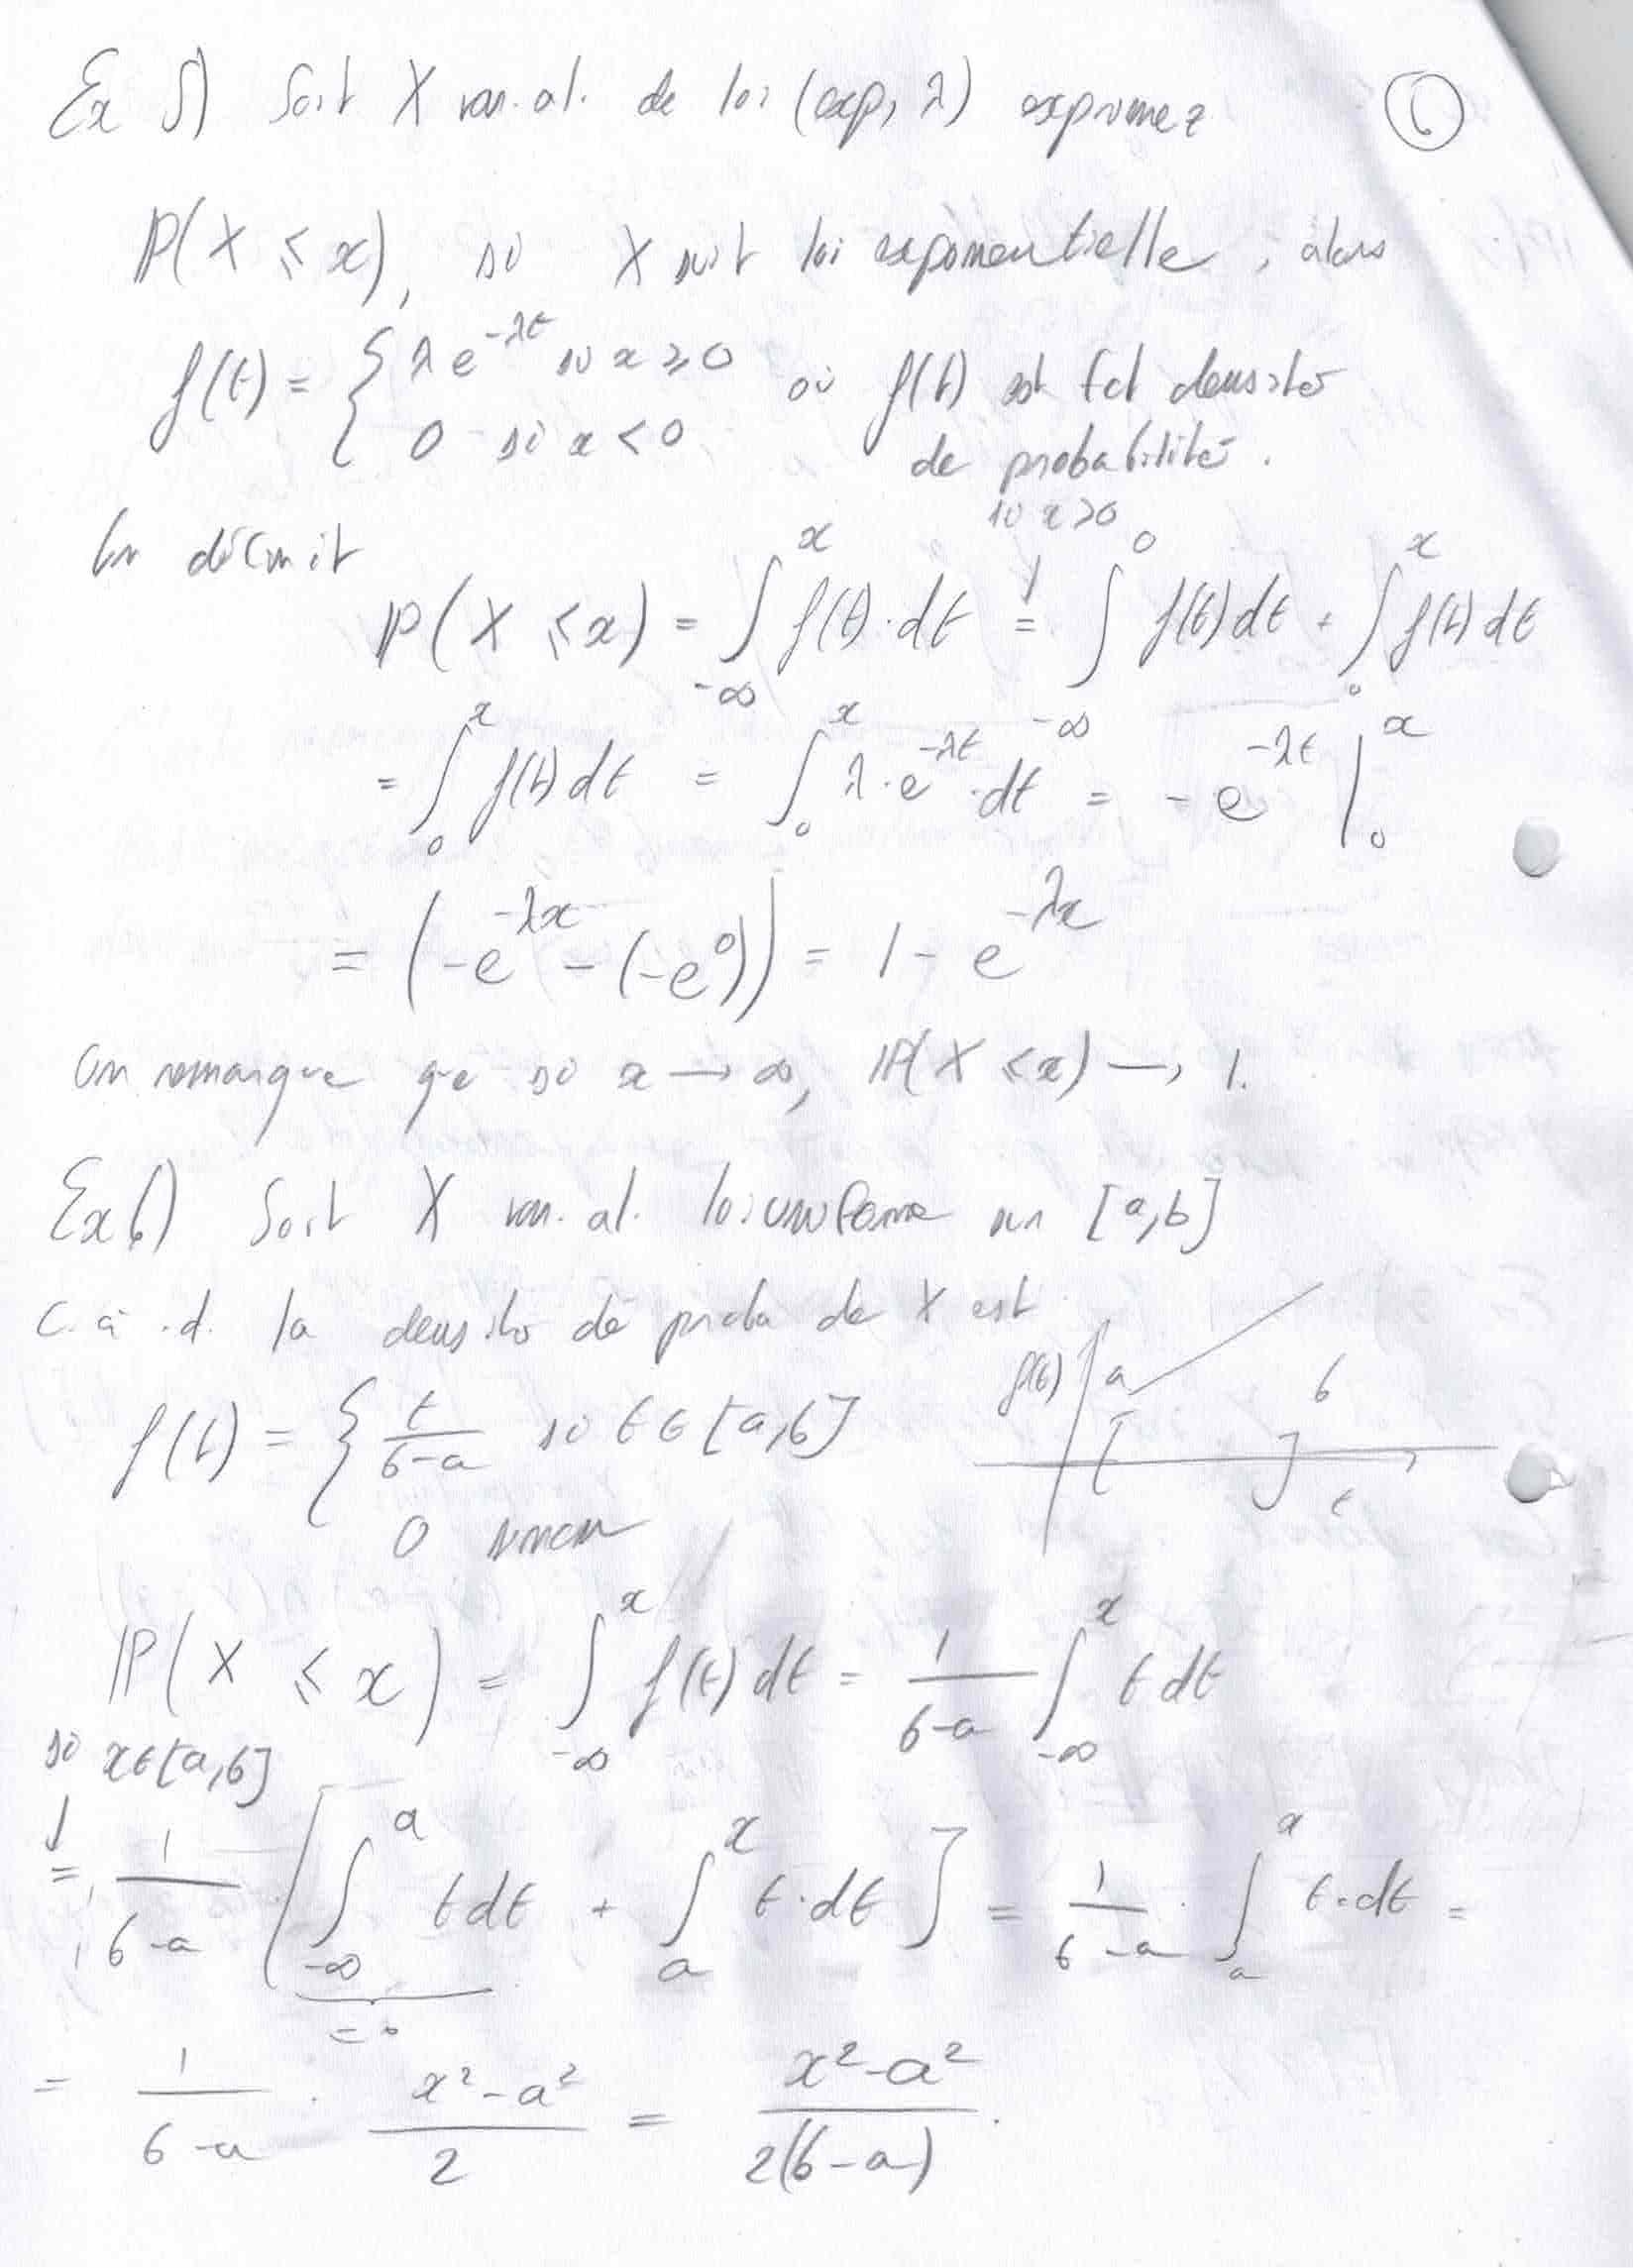 Ex 5) Soit X var. al. de loi (exp, λ) exprimez
6
P(X ≤ x), si X suit loi exponentielle, alors
f(t) = { λe^{-λt} si x ≥ 0
0 si x < 0
où f(t) est fct densité
de probabilité.
En décrit
P(X ≤ x) = ∫_{-∞}^{x} f(t)·dt = (si x>0) ∫_{-∞}^{0} f(t)dt + ∫_{0}^{x} f(t)dt
= ∫_{0}^{x} f(t)dt = ∫_{0}^{x} λ·e^{-λt}·dt = -e^{-λt} |_{0}^{x}
= (-e^{-λx} - (-e^{0})) = 1 - e^{-λx}
On remarque que si x → ∞, P(X ≤ x) → 1.
Ex 6) Soit X var. al. loi uniforme sur [a,b]
c. à .d. la densité de proba de X est
f(t) = { t/(b-a) si t ∈ [a,b]
0 sinon
f(t) a b t
P(X ≤ x) = ∫_{-∞}^{x} f(t)dt = 1/(b-a) ∫_{-∞}^{x} t dt
si x∈[a,b]
= 1/(b-a) [∫_{-∞}^{a} t dt + ∫_{a}^{x} t·dt] = 1/(b-a) · ∫_{a}^{x} t·dt =
= 0
= 1/(b-a) · (x²-a²)/2 = (x²-a²)/(2(b-a)).